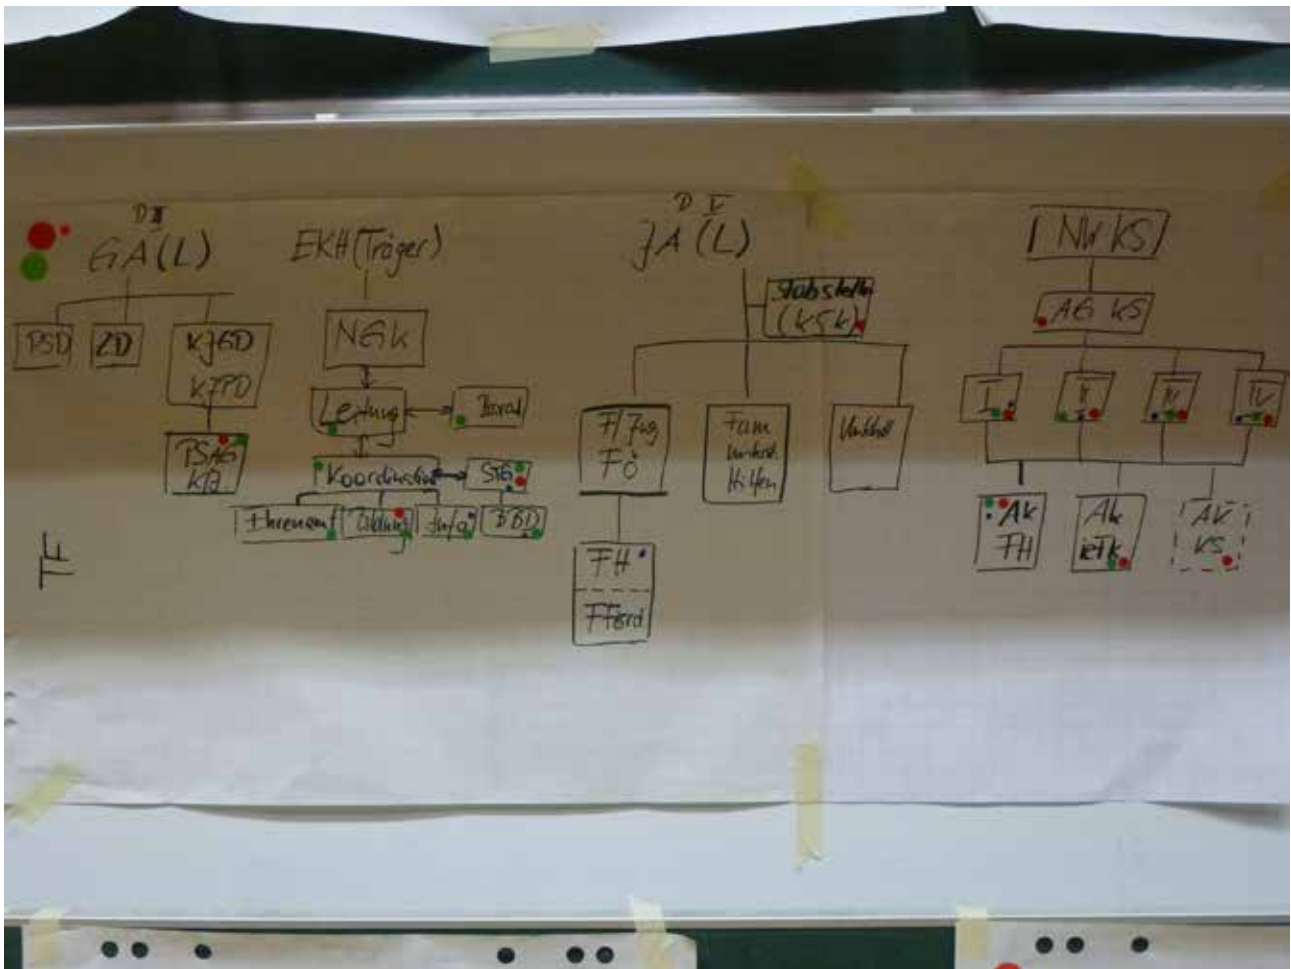 D III
GA (L)
PSD
ZD
KJGD
KJPD
PSAG
KJ
TF
EKH (Träger)
NGK
Leitung
Beirat
Koordination
STG
Ehrenamt
Bildung
Info
BBD
D V
JA (L)
Stabstelle
(KSK)
F/Zug
FÖ
Fam
unterst.
Hilfen
FH
FFörd
NW KS
AG KS
I
II
III
IV
AK
FH
AK
AK
KS